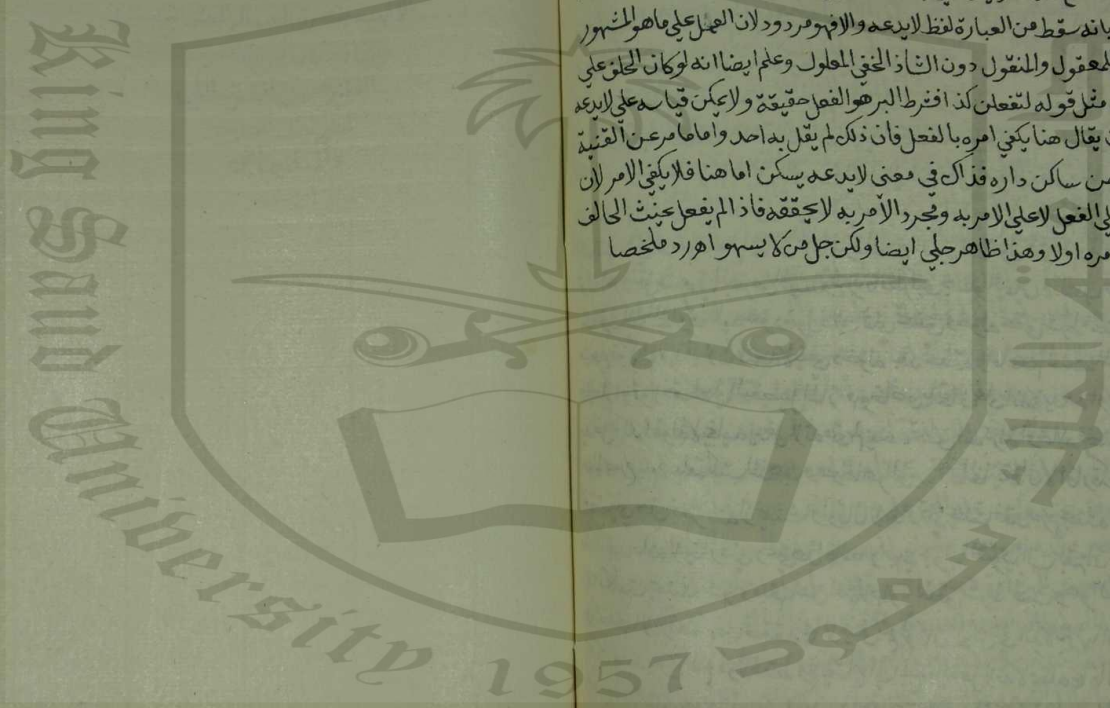 بانه سقط من العبارة لفظ لا يدعه والا فهو مردود لان العمل علي ما هو المشهور
لمعقول والمنقول دون الشاذ الخفي المعلول وعلم ايضا انه لو كان الحلف علي
مثل قوله لتفعلن كذا فشرط البر هو الفعل حقيقة ولا يمكن قياسه علي لا يدعه
يقال هنا يكفي امره بالفعل فان ذلك لم يقل به احد واما ما مر عن القنية
من ساكن داره فذاك في معنى لا يدعه يسكن اما هنا فلا يكفي الامر لان
الفعل لا علي الامر به ومجرد الأمر به لا يحققه فاذا لم يفعل يحنث الحالف
مره اولا وهذا ظاهر جلي ايضا ولكن جل من لا يسهو اهـ رد ملخصا
King Saud University
1957